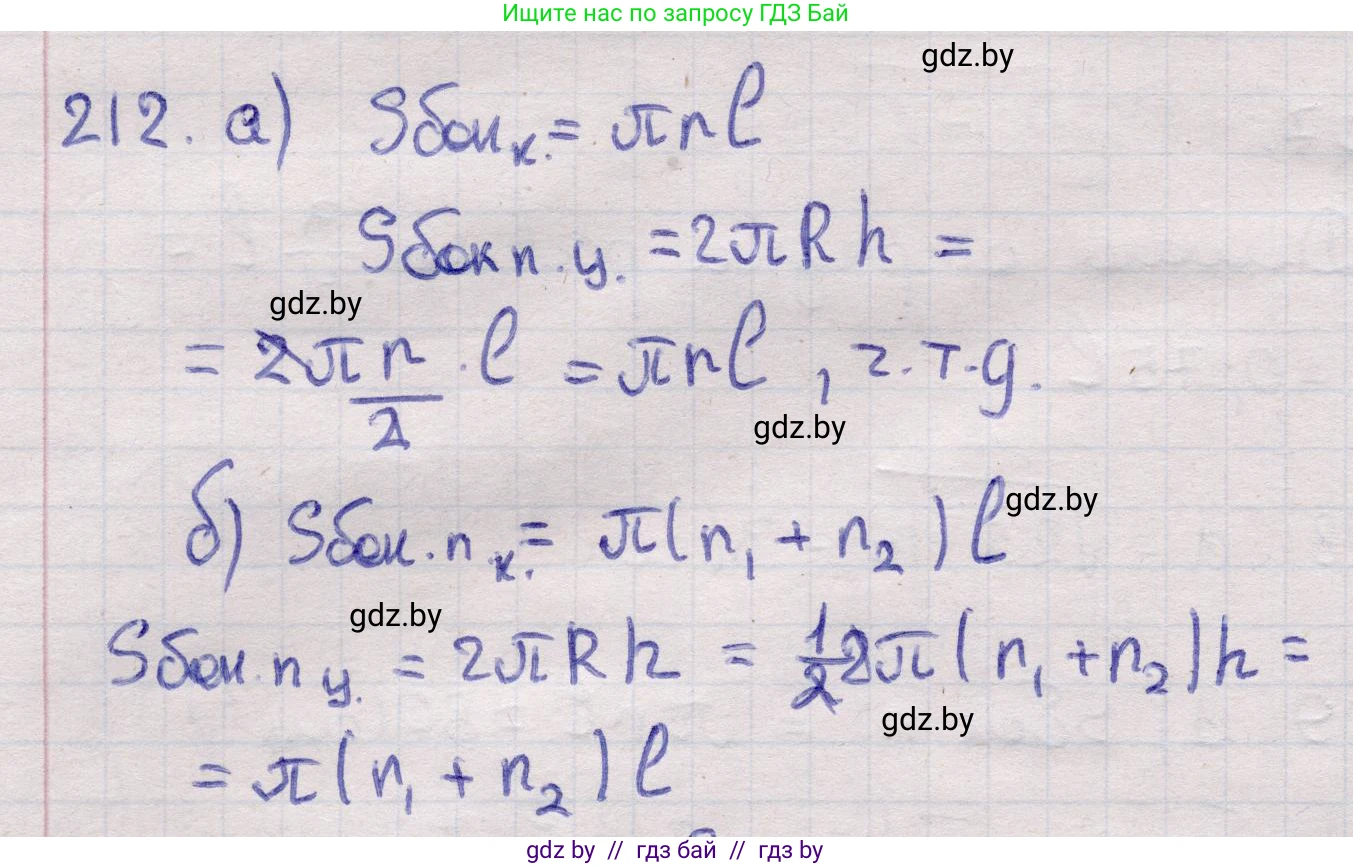 Ищите нас по запросу ГДЗ Бай
gdz.by
212. а) Sбок к. = πrl
Sбок п.ц. = 2πRh =
gdz.by
= 2π r/2 · l = πrl, ч.т.д.
gdz.by
б) Sбок.п к. = π(r₁ + r₂)l
gdz.by
gdz.by
Sбок.п ц. = 2πRh = 1/2 2π(r₁ + r₂)h =
gdz.by
= π(r₁ + r₂)l
gdz by // гдз бай // гдз by